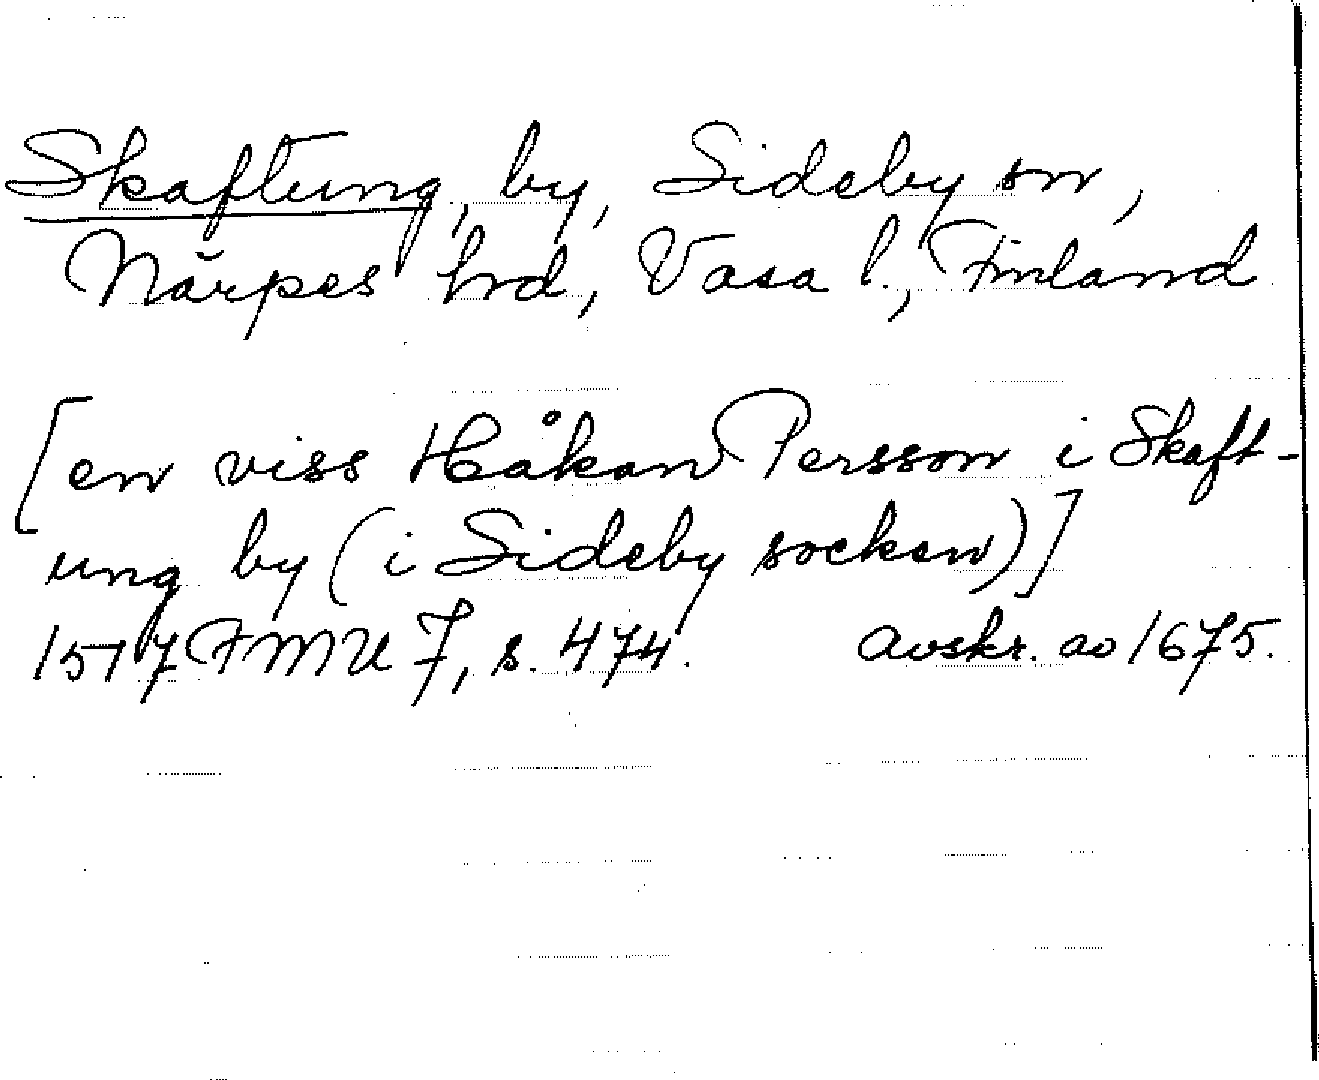 Skaftung, by, Sideby sn,
Närpes hrd, Vasa l., Finland
[en viss Håkan Persson i Skaft-
ung by (i Sideby socken)]
1517 FMU 7, s. 474. Avskr. av 1675.